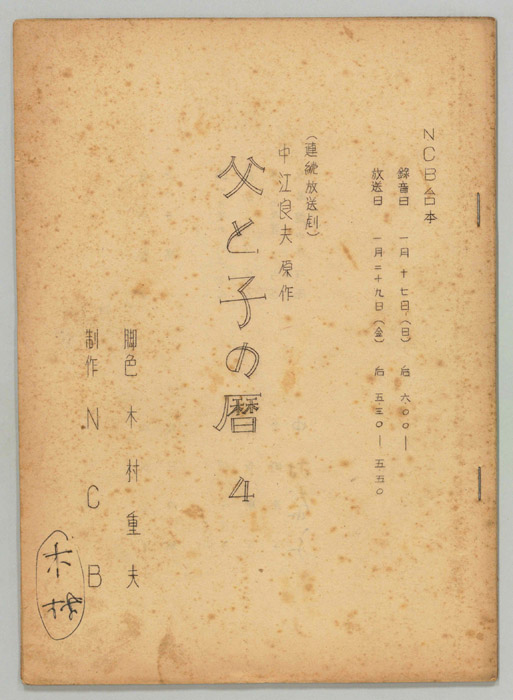 NCB台本
録音日 一月十七日(日) 后 六〇〇―
放送日 一月二十九日(金) 后 五三〇―五五〇
(連続放送劇)
中江良夫 原作
父と子の暦 4
脚色 木村重夫
制作 NCB
木村